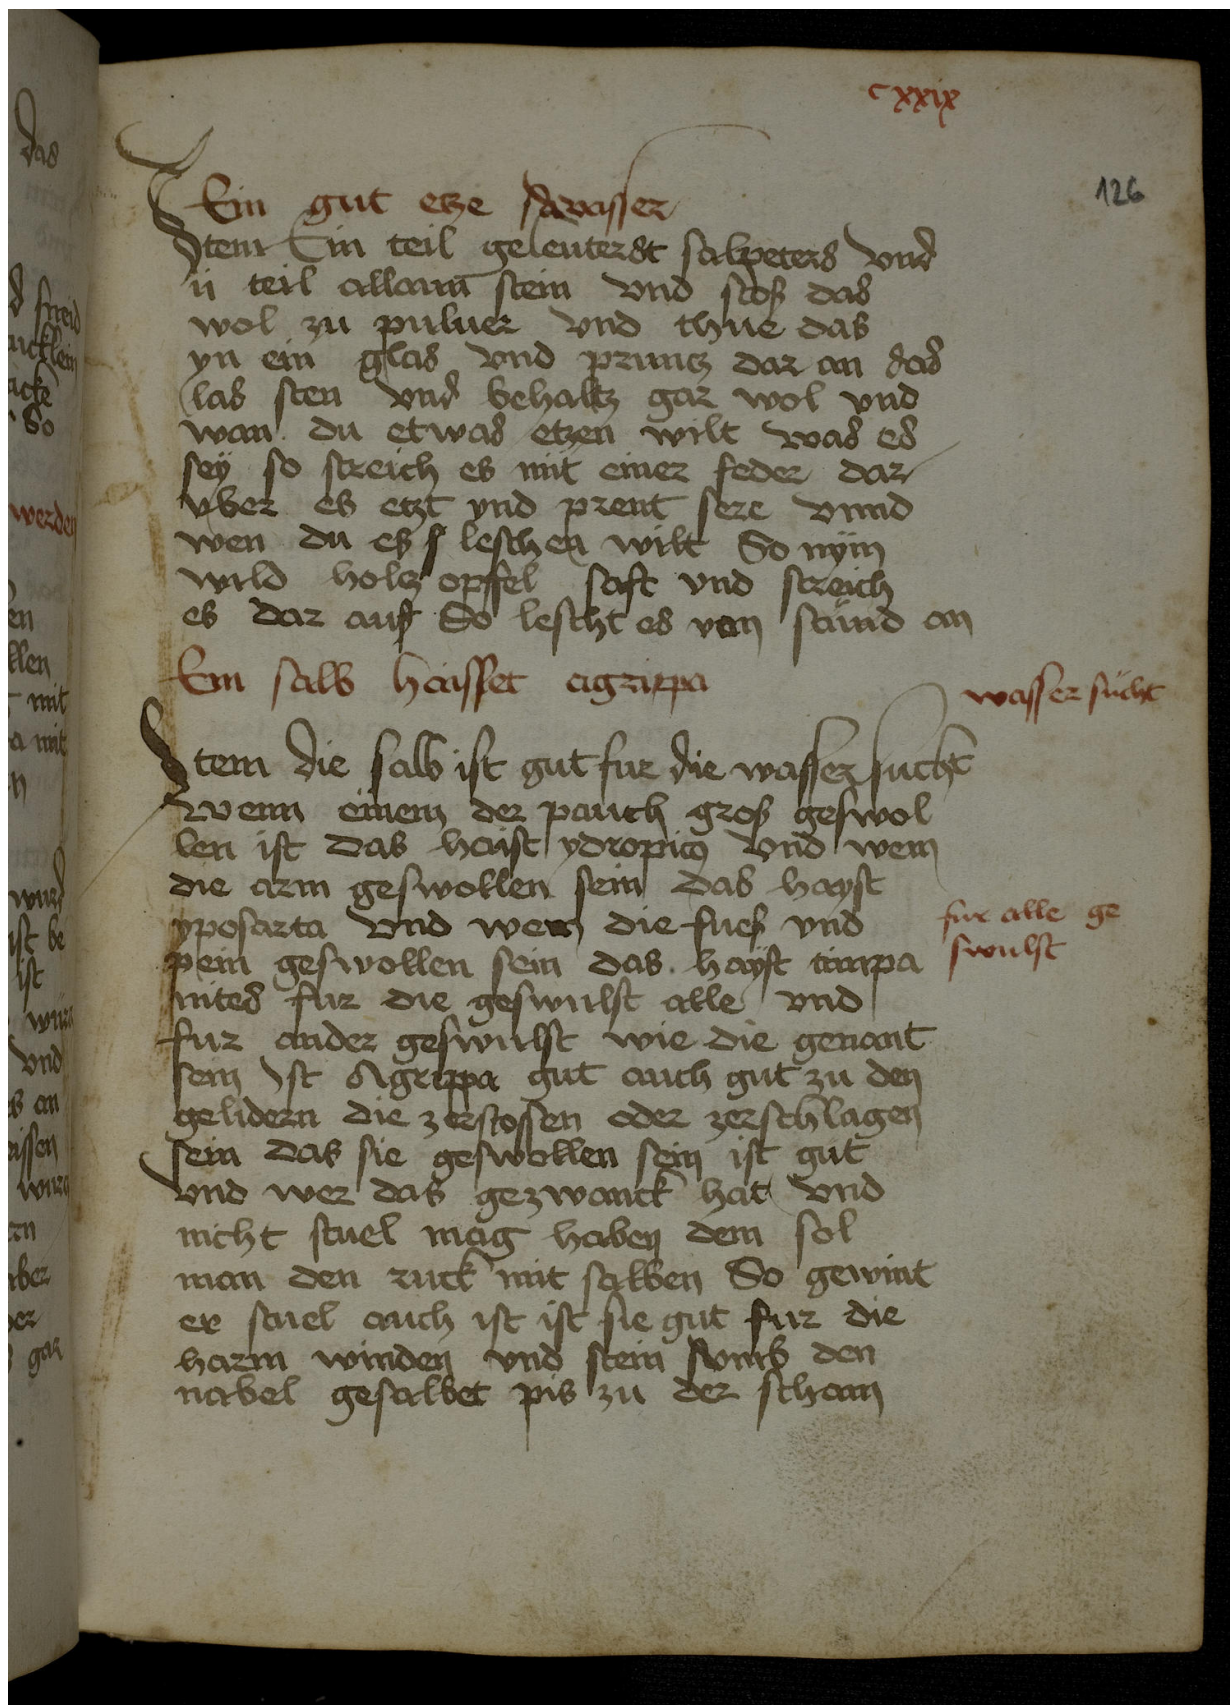 cxxix
126
Ein gut etze wasser
Item Ein teil geleuterdt salpeters vnd
ii teil allaun stein vnd stoß das
wol zu puluer vnd thue das
yn ein glas vnd pruntz dar an das
las sten vnd behaltz gar wol vnd
wan du etwas etzen wilt was es
sey so streich es mit einer feder dar
vber es etzt vnd prent sere vnnd
wen du es leschen wilt So nym
wild holtz opffel saft vnd streich
es dar auf So lescht es von stund an
Ein salb haisset agrippa
wasser sucht
Item die salb ist gut fur die wasser sucht
Wenn einem der pauch groß geswol
len ist das haist ydropicis vnd wem
die arm geswollen sein das hayst
yposarta vnd wem die fueß vnd
fur alle ge
swulst
pein geswollen sein das hayst timpa
nites fur die geswulst alle vnd
fur ander geswulst wie die genant
sein Ist Agrippa gut auch gut zu den
gelidern die zerstossen oder zerschlagen
sein das sie geswollen sein ist gut
vnd wer das gezwanck hat vnd
nicht stuel mag haben dem sol
man den ruck mit salben So gewint
er stuel auch ist ist sie gut fur die
harm winden vnd stein vmb den
nabel gesalbet pis zu der scham
das
werden
So
mit
ist
vnd
gar